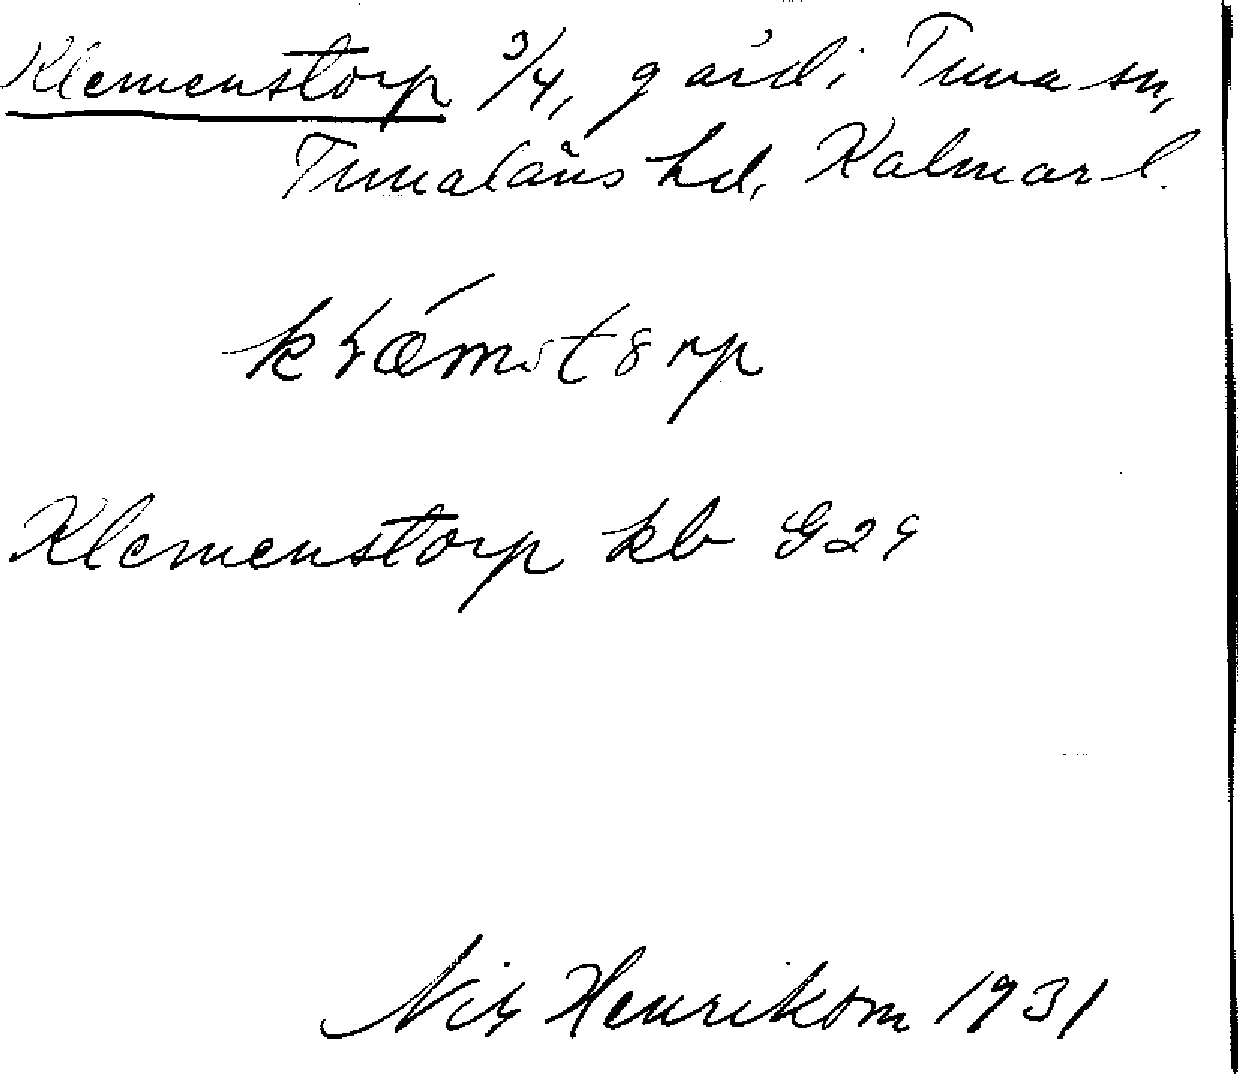 Klemenstorp 3/4, gård i Tuna sn,
Tunaläns hd, Kalmar l.
Klemenstorp kb G 29
Nils Henrikson 1931